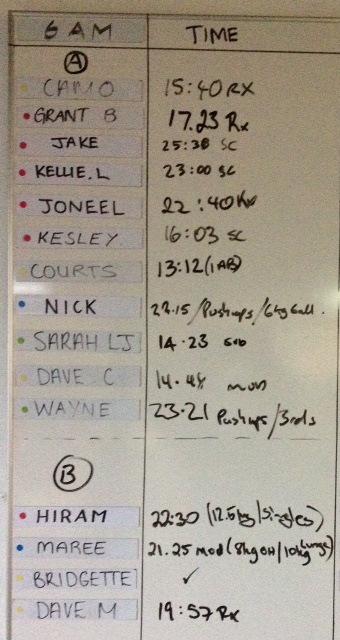 6 AM TIME
A
CAMO 15:40 RX
GRANT B 17.23 Rx
JAKE 25:38 SC
KELLIE.L 23:00 SC
JONEEL 22:40 Rx
KESLEY 16:03 SC
COURTS 13:12 (1AB)
NICK 27.15/Pushups/6kg ball.
SARAH LJ 14.23
DAVE C 14.48 mod
WAYNE 23.21 Pushups/3rds
B
HIRAM 22:30 (12.5kg/Singles)
MAREE 21.25 mod (8kg OH/10kg Lunge)
BRIDGETTE ✓
DAVE M 19:57 Rx